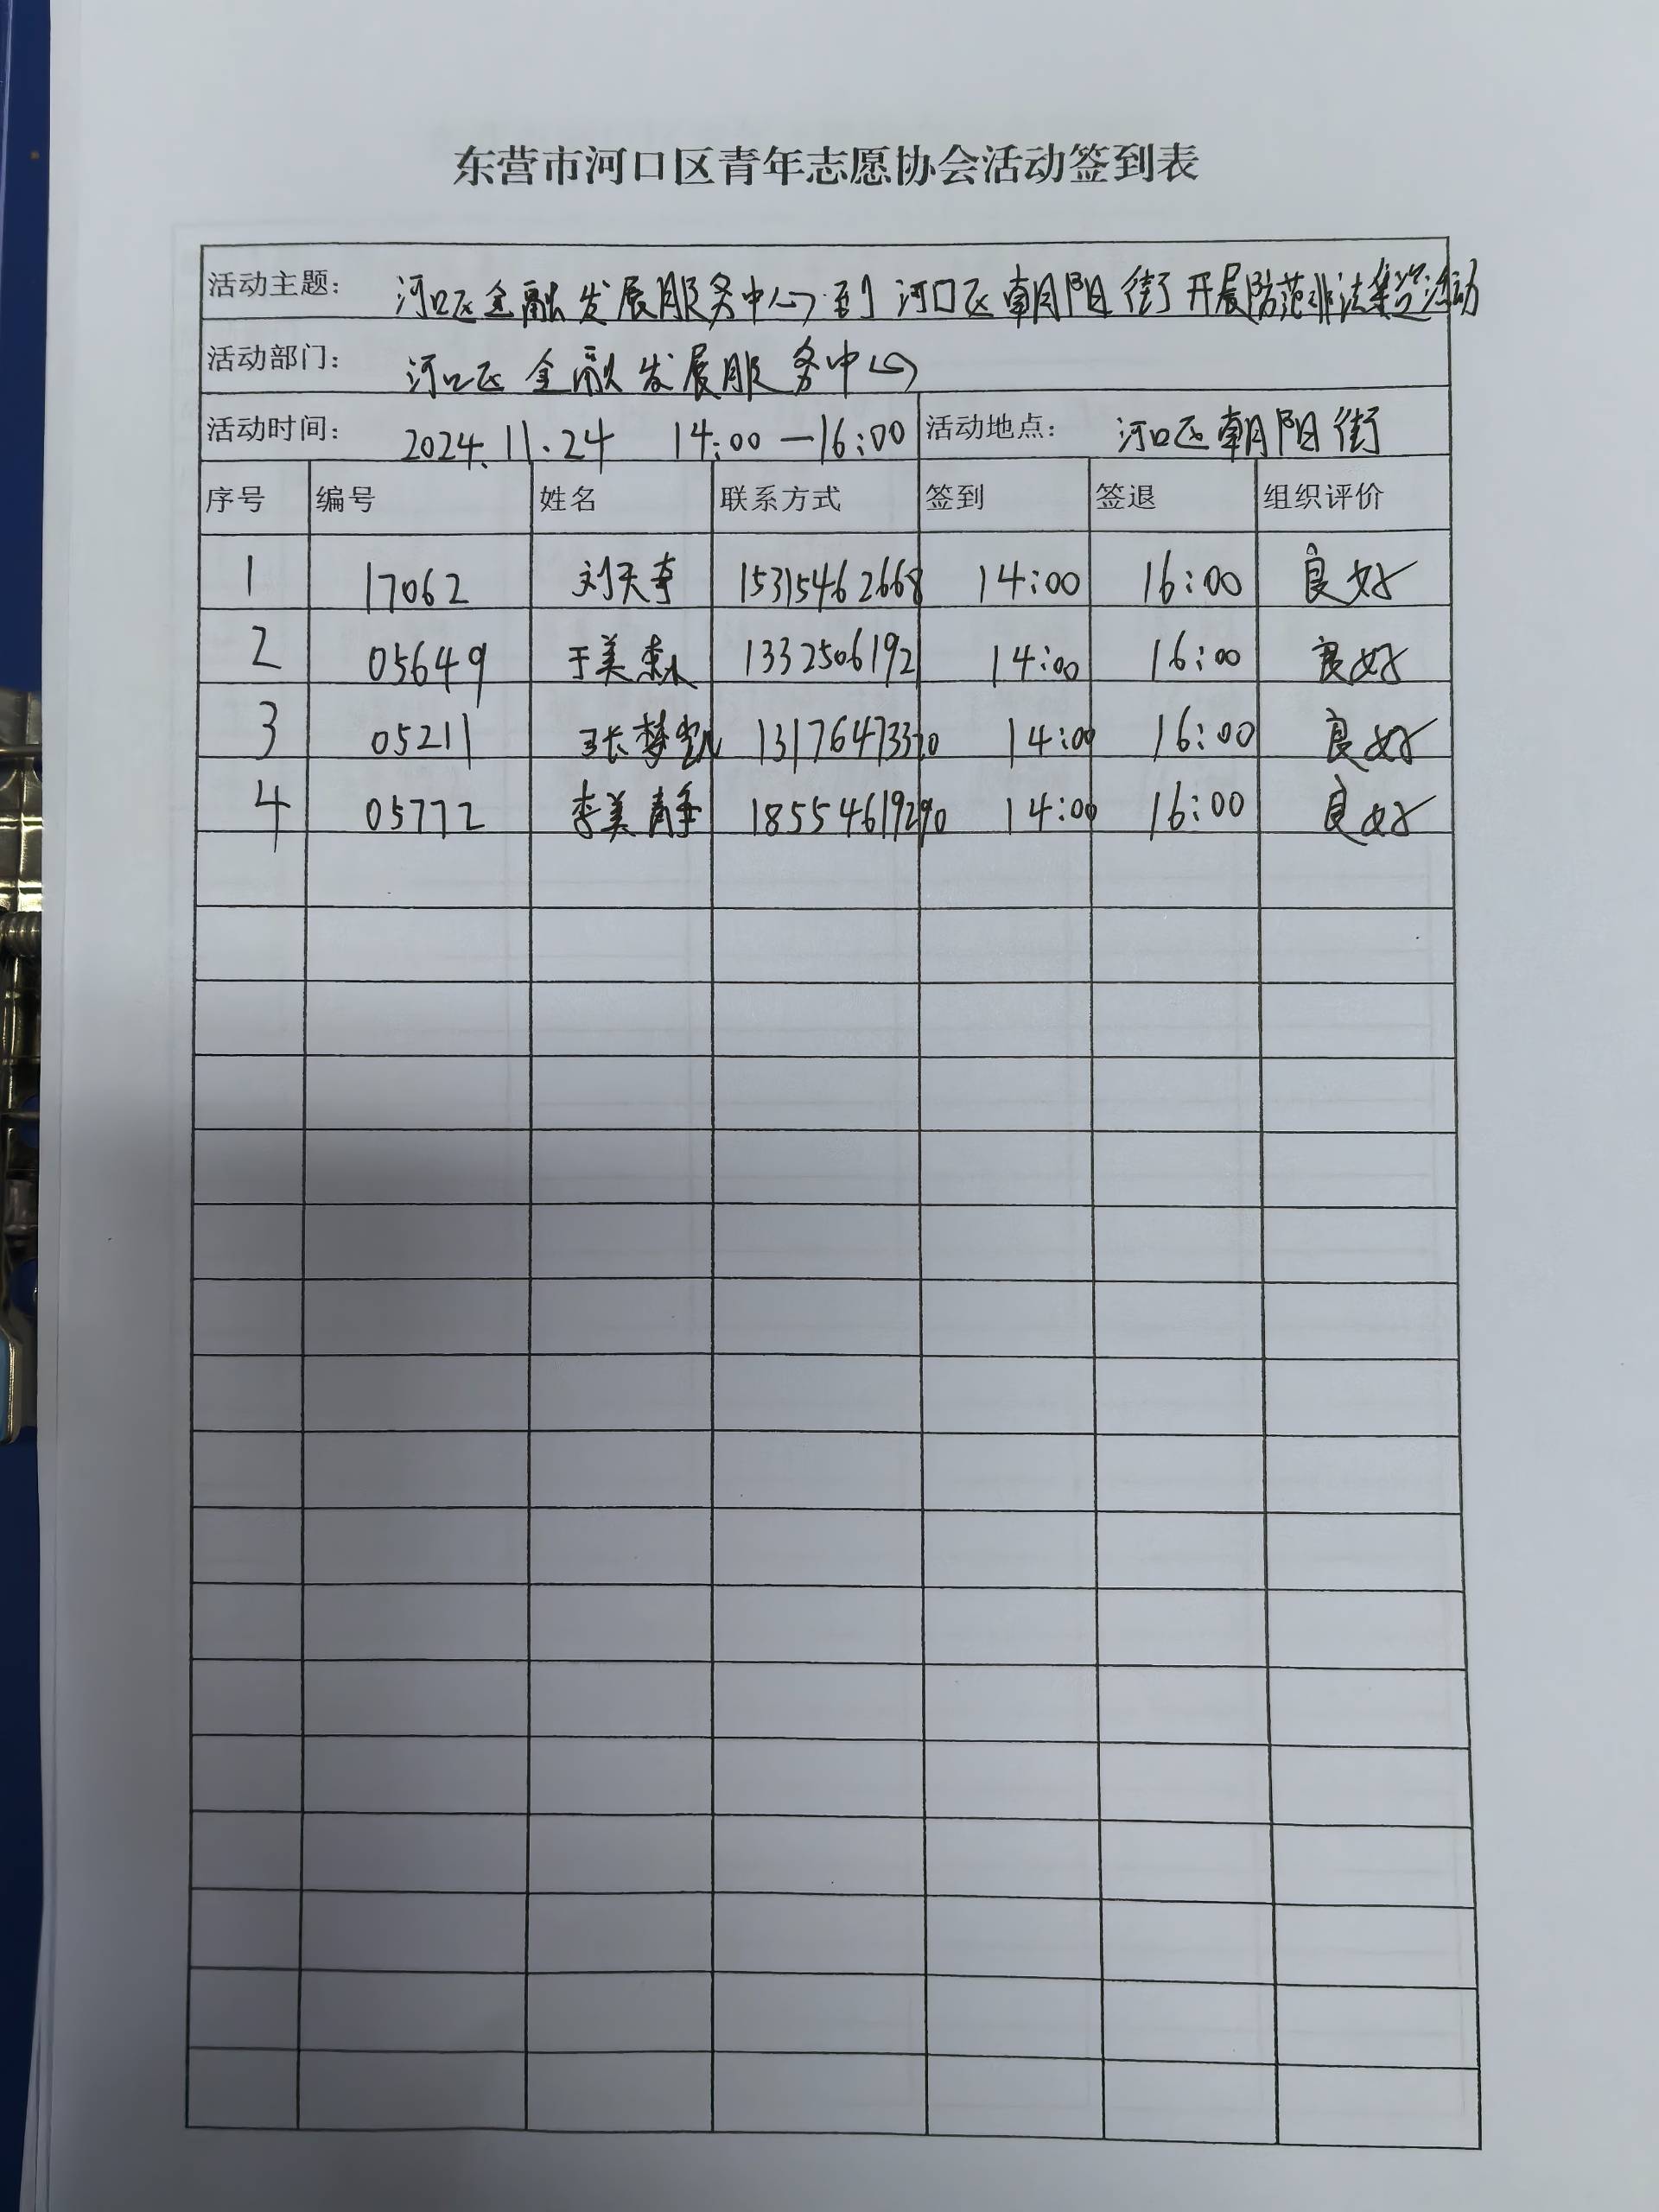 东营市河口区青年志愿协会活动签到表
活动主题： 河口区金融发展服务中心到河口区朝阳街开展防范非法集资活动
活动部门： 河口区金融发展服务中心
活动时间： 2024.11.24 14:00—16:00 活动地点： 河口区朝阳街
序号 编号 姓名 联系方式 签到 签退 组织评价
1 17062 刘天 15315462668 14:00 16:00 良好
2 05649 于美 1332506192 14:00 16:00 良好
3 05211 张梦 13176473320 14:00 16:00 良好
4 05772 李美静 18554619290 14:00 16:00 良好